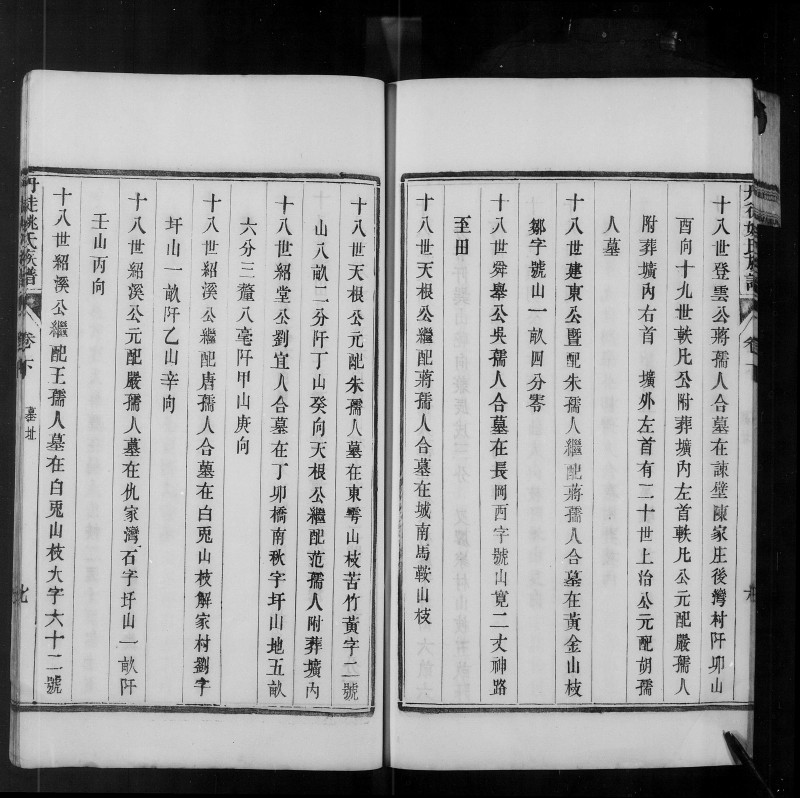 十八世登雲公蔣孺人合墓在諫壁陳家庄後灣村阡卯山
酉向十九世軼凡公附葬壙內左首軼凡公元配嚴孺人
附葬壙內右首　壙外左首有二十世上治公元配胡孺
人墓
十八世建東公暨配朱孺人繼配蔣孺人合墓在黃金山枝
鄒字號山一畝四分零
十八世舜皋公吳孺人合墓在長岡西字號山寬二丈神路
至田
十八世天根公繼配蔣孺人合墓在城南馬鞍山枝
十八世天根公元配朱孺人墓在東霅山枝苦竹黃字二號
山八畝二分阡丁山癸向天根公繼配范孺人附葬壙內
十八世紹堂公劉宜人合墓在丁卯橋南秋字圩山地五畝
六分三釐八毫阡甲山庚向
十八世紹溪公繼配唐孺人合墓在白兎山枝解家村劉字
圩山一畝阡乙山辛向
十八世紹溪公元配嚴孺人墓在仇家灣石字圩山一畝阡
壬山丙向
十八世紹溪公繼配王孺人墓在白兎山枝大字六十二號
丹徒姚氏族譜
卷下
墓址